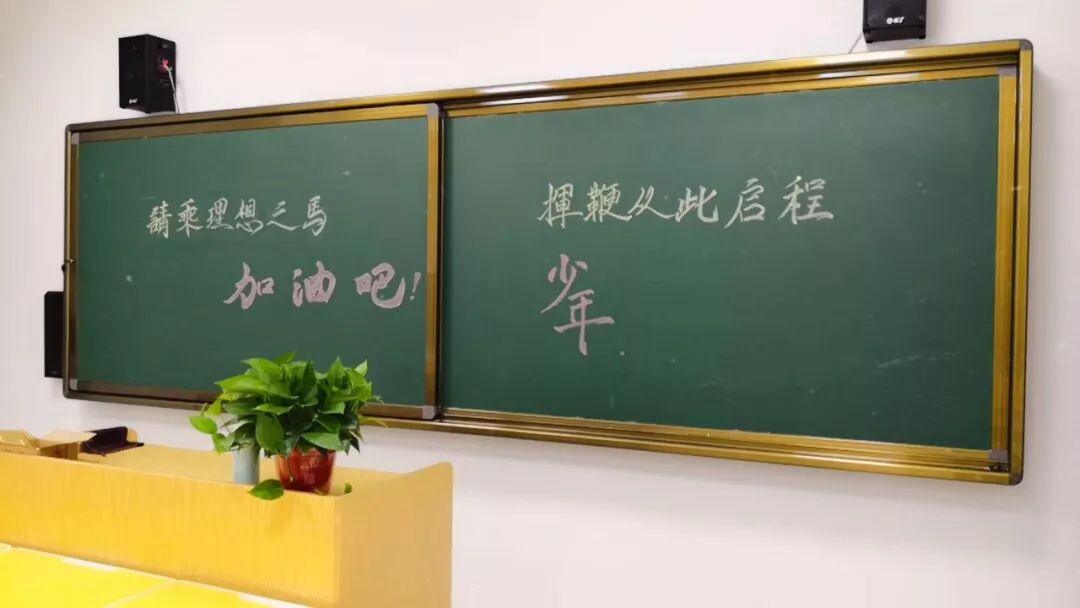 請乘理想之馬
加油吧!
揮鞭从此启程
少年